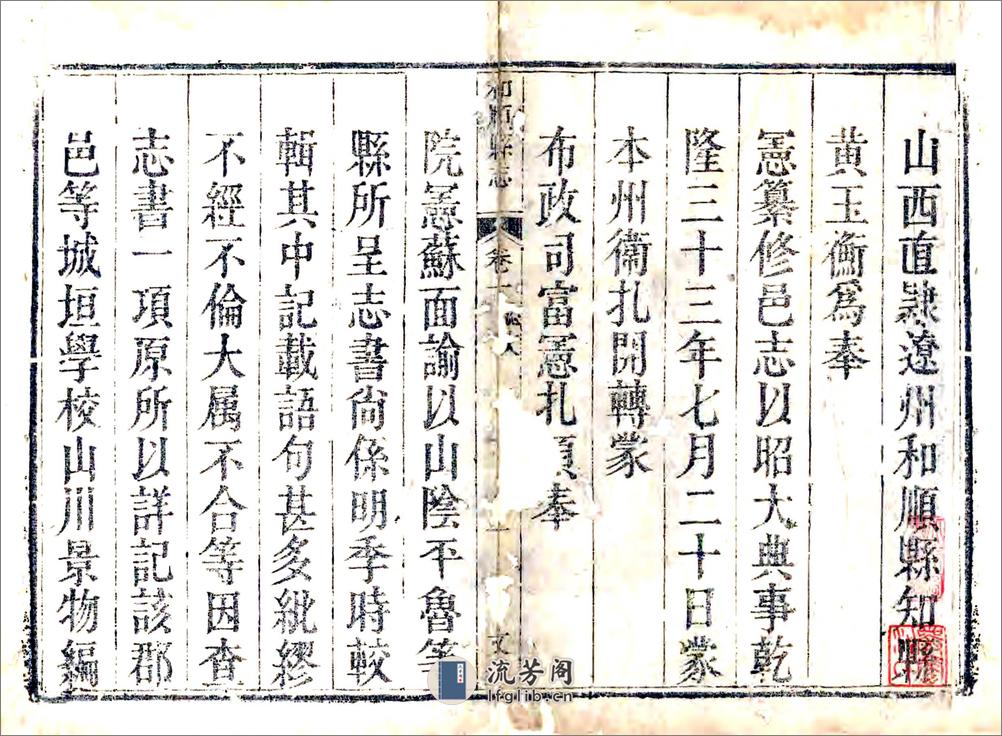 山西直隸遼州和順縣知縣
黄玉衡為奉
憲纂修邑志以昭大典事乾
隆三十三年七月二十日蒙
本州衛扎開轉蒙
布政司富憲扎
奉
和順縣志
卷
文
院憲蘇面諭以山陰平魯等
縣所呈志書尙係明季時較
輯其中記載語句甚多紕繆
不經不倫大属不合等因查
志書一項原所以詳記該郡
邑等城垣學校山川景物編
流芳阁
lfglib.cn